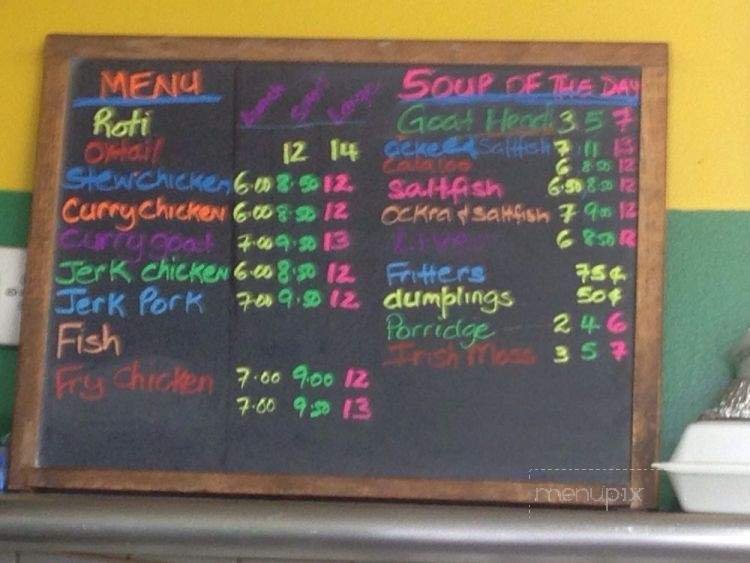 MENU
Roti
Oxtail 12 14
Stew chicken 6.00 8.50 12
Curry chicken 6.00 8.50 12
Curry goat 7.00 9.50 13
Jerk chicken 6.00 8.50 12
Jerk Pork 7.00 9.50 12
Fish
Fry Chicken 7.00 9.00 12
7.00 9.50 13
SOUP OF THE DAY
Goat Head 3 5 7
Saltfish 7 11 13
Calaloo 6 8.50 12
Saltfish 6.50 8.50 12
Ockra & Saltfish 7 9.00 12
Liver 6 8.50 12
Fritters 75¢
dumplings 50¢
Porridge 2 4 6
Irish Moss 3 5 7
menupix